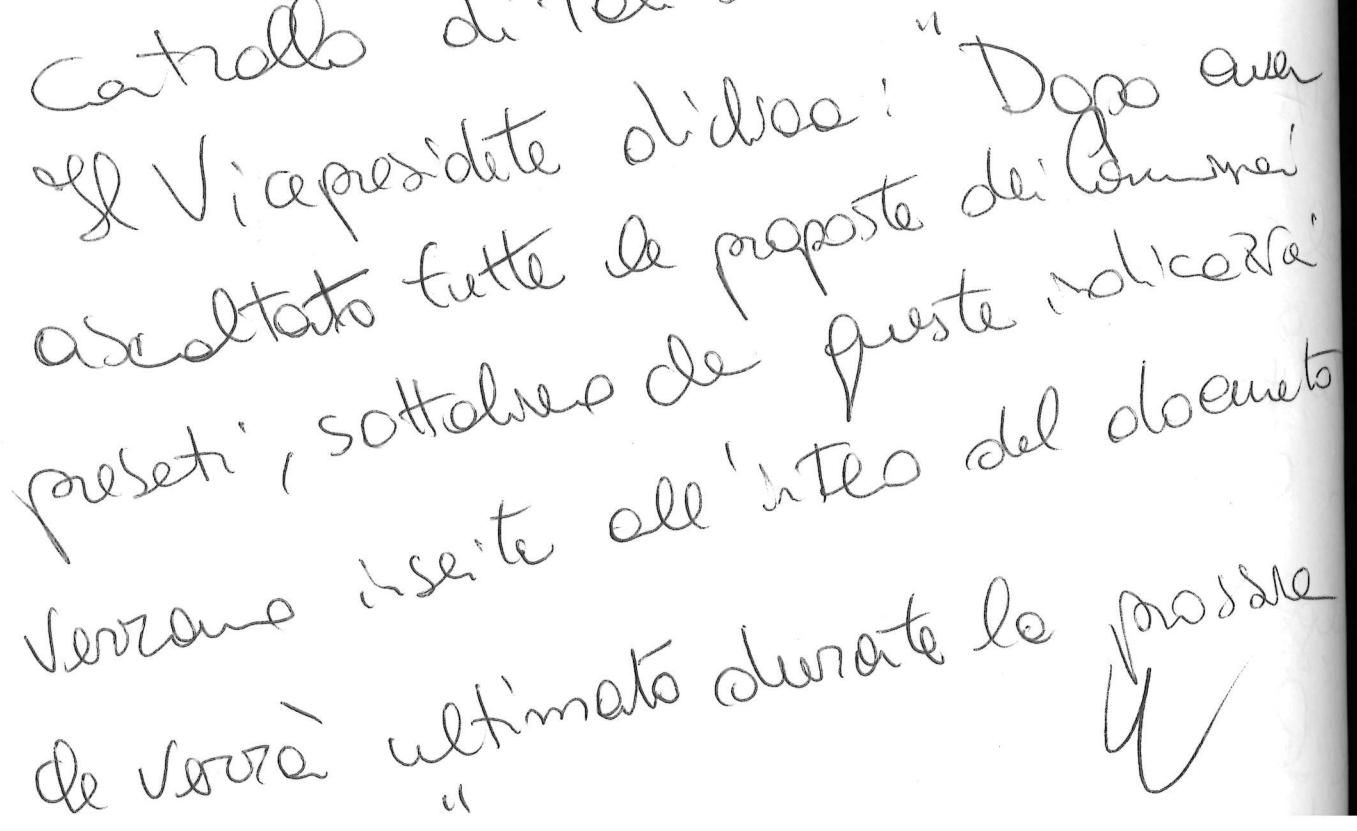 Controllo di
Il Vicepresidente dichiara: "Dopo aver
ascoltato tutte le proposte dei Commissari
presenti, sottolineo che queste indicazioni
verranno inserite all'interno del documento
che verrà ultimato durante la prossima
"